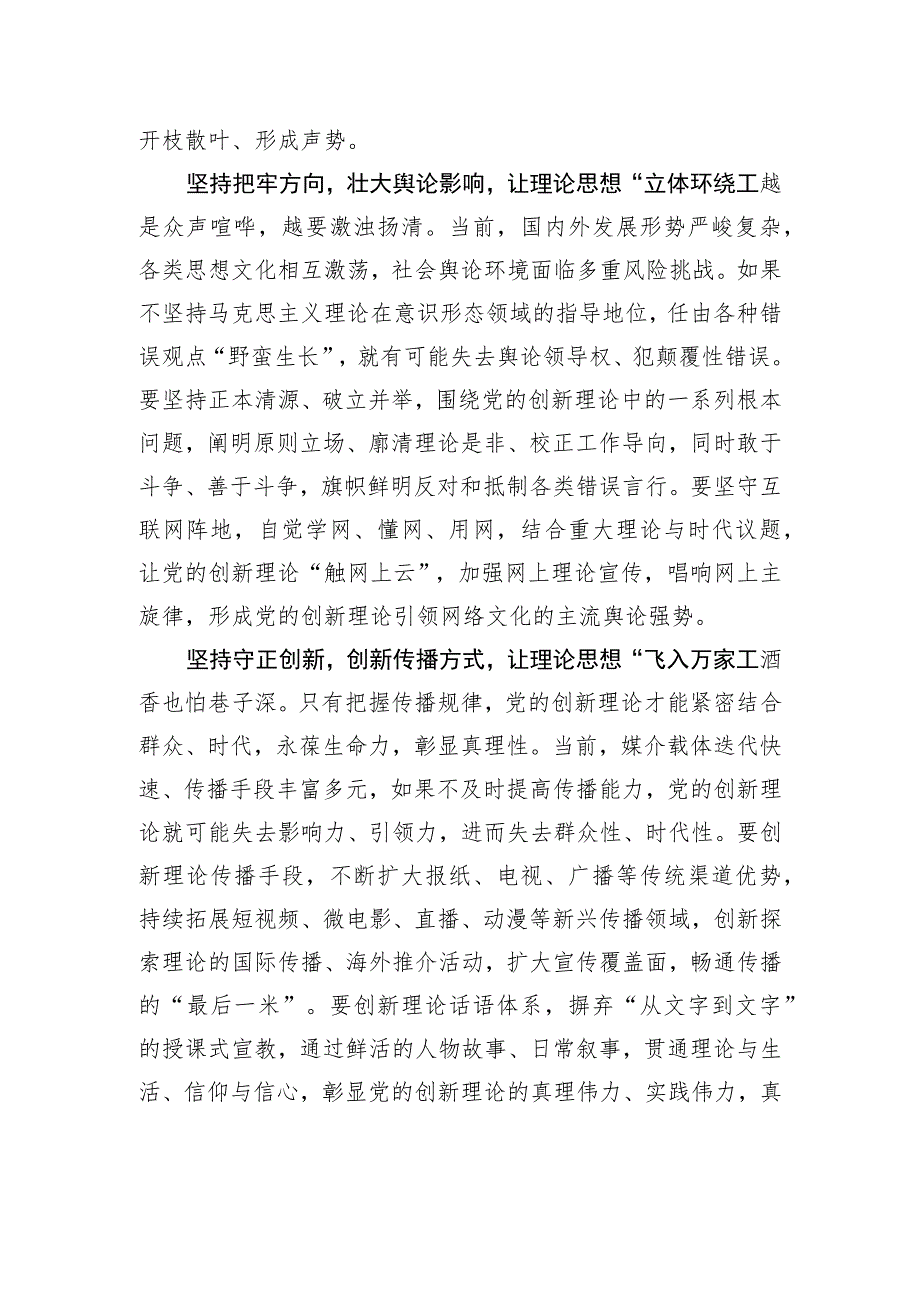 开枝散叶、形成声势。
坚持把牢方向，壮大舆论影响，让理论思想“立体环绕工越
是众声喧哗，越要激浊扬清。当前，国内外发展形势严峻复杂，
各类思想文化相互激荡，社会舆论环境面临多重风险挑战。如果
不坚持马克思主义理论在意识形态领域的指导地位，任由各种错
误观点“野蛮生长”，就有可能失去舆论领导权、犯颠覆性错误。
要坚持正本清源、破立并举，围绕党的创新理论中的一系列根本
问题，阐明原则立场、廓清理论是非、校正工作导向，同时敢于
斗争、善于斗争，旗帜鲜明反对和抵制各类错误言行。要坚守互
联网阵地，自觉学网、懂网、用网，结合重大理论与时代议题，
让党的创新理论“触网上云”，加强网上理论宣传，唱响网上主
旋律，形成党的创新理论引领网络文化的主流舆论强势。
坚持守正创新，创新传播方式，让理论思想“飞入万家工酒
香也怕巷子深。只有把握传播规律，党的创新理论才能紧密结合
群众、时代，永葆生命力，彰显真理性。当前，媒介载体迭代快
速、传播手段丰富多元，如果不及时提高传播能力，党的创新理
论就可能失去影响力、引领力，进而失去群众性、时代性。要创
新理论传播手段，不断扩大报纸、电视、广播等传统渠道优势，
持续拓展短视频、微电影、直播、动漫等新兴传播领域，创新探
索理论的国际传播、海外推介活动，扩大宣传覆盖面，畅通传播
的“最后一米”。要创新理论话语体系，摒弃“从文字到文字”
的授课式宣教，通过鲜活的人物故事、日常叙事，贯通理论与生
活、信仰与信心，彰显党的创新理论的真理伟力、实践伟力，真